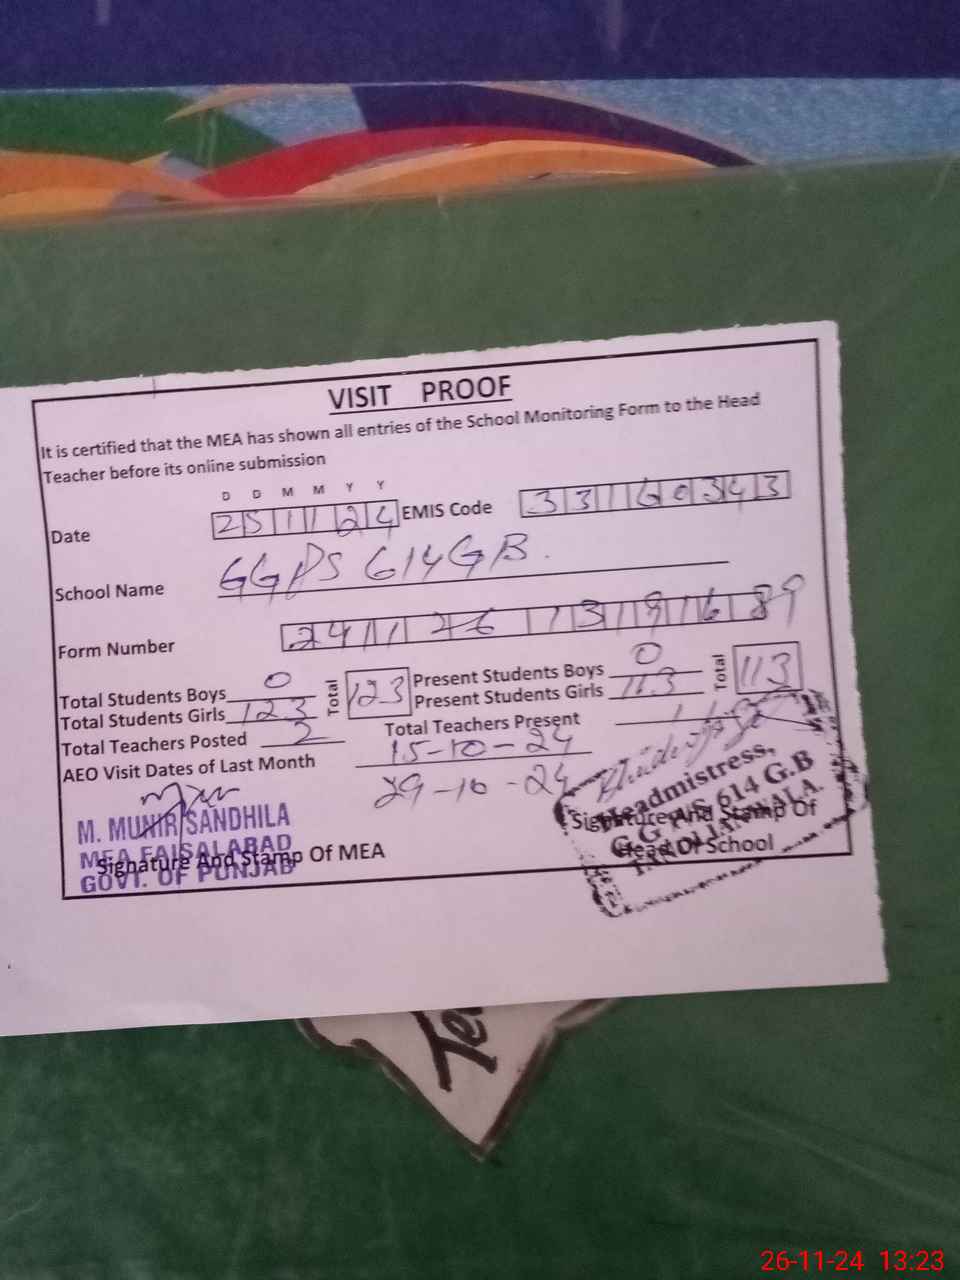 VISIT PROOF
It is certified that the MEA has shown all entries of the School Monitoring Form to the Head
Teacher before its online submission
D D M M Y Y
Date 25 11 24 EMIS Code 33160343
School Name GGPS 614 GB.
Form Number
Total Students Boys 0 Total 123 Present Students Boys 0 Total 113
Total Students Girls 123 Present Students Girls 113
Total Teachers Posted 2 Total Teachers Present
AEO Visit Dates of Last Month 15-10-24
29-10-24
M. MUNIR SANDHILA
MEA FAISALABAD
GOVT. OF PUNJAB
Signature And Stamp Of MEA
Headmistress,
614 G.B
Signature And Stamp Of
Head Of School
Te
26-11-24 13:23